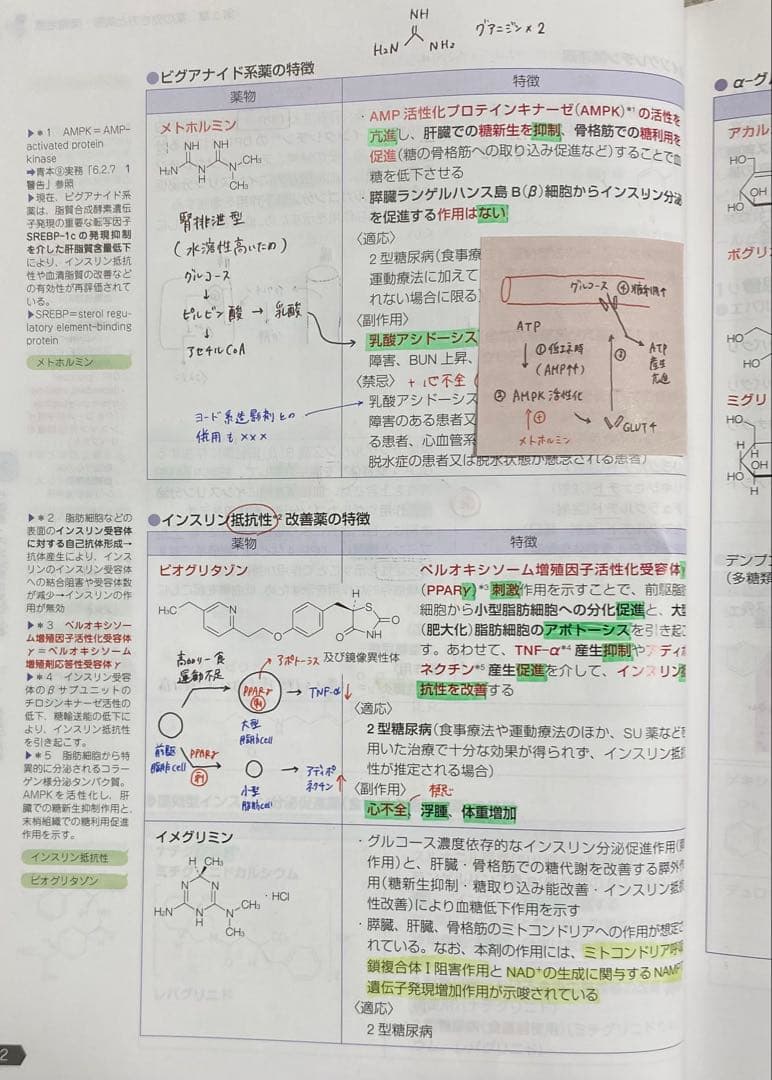 NH
H₂N NH₂
グアニジン×2
●ビグアナイド系薬の特徴
薬物
特徴
メトホルミン
NH NH
H₂N N H N CH₃
CH₃
・AMP 活性化プロテインキナーゼ(AMPK)*¹ の活性を
亢進し、肝臓での糖新生を抑制、骨格筋での糖利用を
促進(糖の骨格筋への取り込み促進など)することで血
糖を低下させる
・膵臓ランゲルハンス島 B(β)細胞からインスリン分泌
を促進する作用はない
〈適応〉
2 型糖尿病(食事療
運動療法に加えて
れない場合に限る)
〈副作用〉
乳酸アシドーシス
障害、BUN 上昇、
〈禁忌〉 +心不全
乳酸アシドーシス
障害のある患者又
る患者、心血管系
脱水症の患者又は脱水状態が懸念される患者)
腎排泄型
(水溶性高いため)
グルコース
↓
ピルビン酸 → 乳酸
↓
アセチルCoA
ヨード系造影剤との
併用も×××
グルコース ④糖利用↑
ATP
↓ ①低エネ時
(AMP↑↑)
② AMPK 活性化
↑⊕
メトホルミン
③
GLUT4
ATP
産生
亢進
▶*1 AMPK=AMP-
activated protein
kinase
➡青本⑨実務「6.2.7 1
警告」参照
▶現在、ビグアナイド系
薬は、脂質合成酵素遺伝
子発現の重要な転写因子
SREBP-1cの発現抑制
を介した肝脂質含量低下
により、インスリン抵抗
性や血清脂質の改善などの
有効性が再評価されて
いる。
▶SREBP=sterol regu-
latory element-binding
protein
メトホルミン
●インスリン抵抗性*²改善薬の特徴
薬物
特徴
ピオグリタゾン
H₃C
N
O
H
S
O
NH
O
及び鏡像異性体
高カロリー食
運動不足
アポトーシス
PPARγ
(刺)
→ TNF-α↓
大型
脂肪cell
前駆
脂肪cell
PPARγ
(刺)
小型
脂肪cell
アディポ
ネクチン↑
ペルオキシソーム増殖因子活性化受容体γ
(PPARγ)*³ 刺激作用を示すことで、前駆脂
細胞から小型脂肪細胞への分化促進と、大型
(肥大化)脂肪細胞のアポトーシスを引き起こ
す。あわせて、TNF-α*⁴ 産生抑制やアディポ
ネクチン*⁵ 産生促進を介して、インスリン抵
抗性を改善する
〈適応〉
2 型糖尿病(食事療法や運動療法のほか、SU 薬など
用いた治療で十分な効果が得られず、インスリン抵
性が推定される場合)
〈副作用〉
心不全、浮腫、体重増加
▶*2 脂肪細胞などの
表面のインスリン受容体
に対する自己抗体形成→
抗体産生により、インス
リンのインスリン受容体
への結合阻害や受容体数
が減少→インスリンの作
用が無効
▶*3 ペルオキシソー
ム増殖因子活性化受容体
γ=ペルオキシソーム
増殖剤応答性受容体γ
▶*4 インスリン受容
体のβサブユニットの
チロシンキナーゼ活性の
低下、糖輸送能の低下に
より、インスリン抵抗性
を引き起こす。
▶*5 脂肪細胞から特
異的に分泌されるコラー
ゲン様分泌タンパク質。
AMPKを活性化し、肝
臓での糖新生抑制作用と、
末梢組織での糖利用促進
作用を示す。
インスリン抵抗性
ピオグリタゾン
イメグリミン
H CH₃
N NH
H₂N N H N CH₃
CH₃
・HCl
・グルコース濃度依存的なインスリン分泌促進作用(膵
作用)と、肝臓・骨格筋での糖代謝を改善する膵外作
用(糖新生抑制・糖取り込み能改善・インスリン抵抗
性改善)により血糖低下作用を示す
・膵臓、肝臓、骨格筋のミトコンドリアへの作用が想定さ
れている。なお、本剤の作用には、ミトコンドリア呼吸
鎖複合体Ⅰ阻害作用と NAD⁺の生成に関与する NAMPT
遺伝子発現増加作用が示唆されている
〈適応〉
2 型糖尿病
2
●α-グル
アカル
HO
HO
ボグリ
HO
ミグリ
HO
H H
HO
デンプ
(多糖類